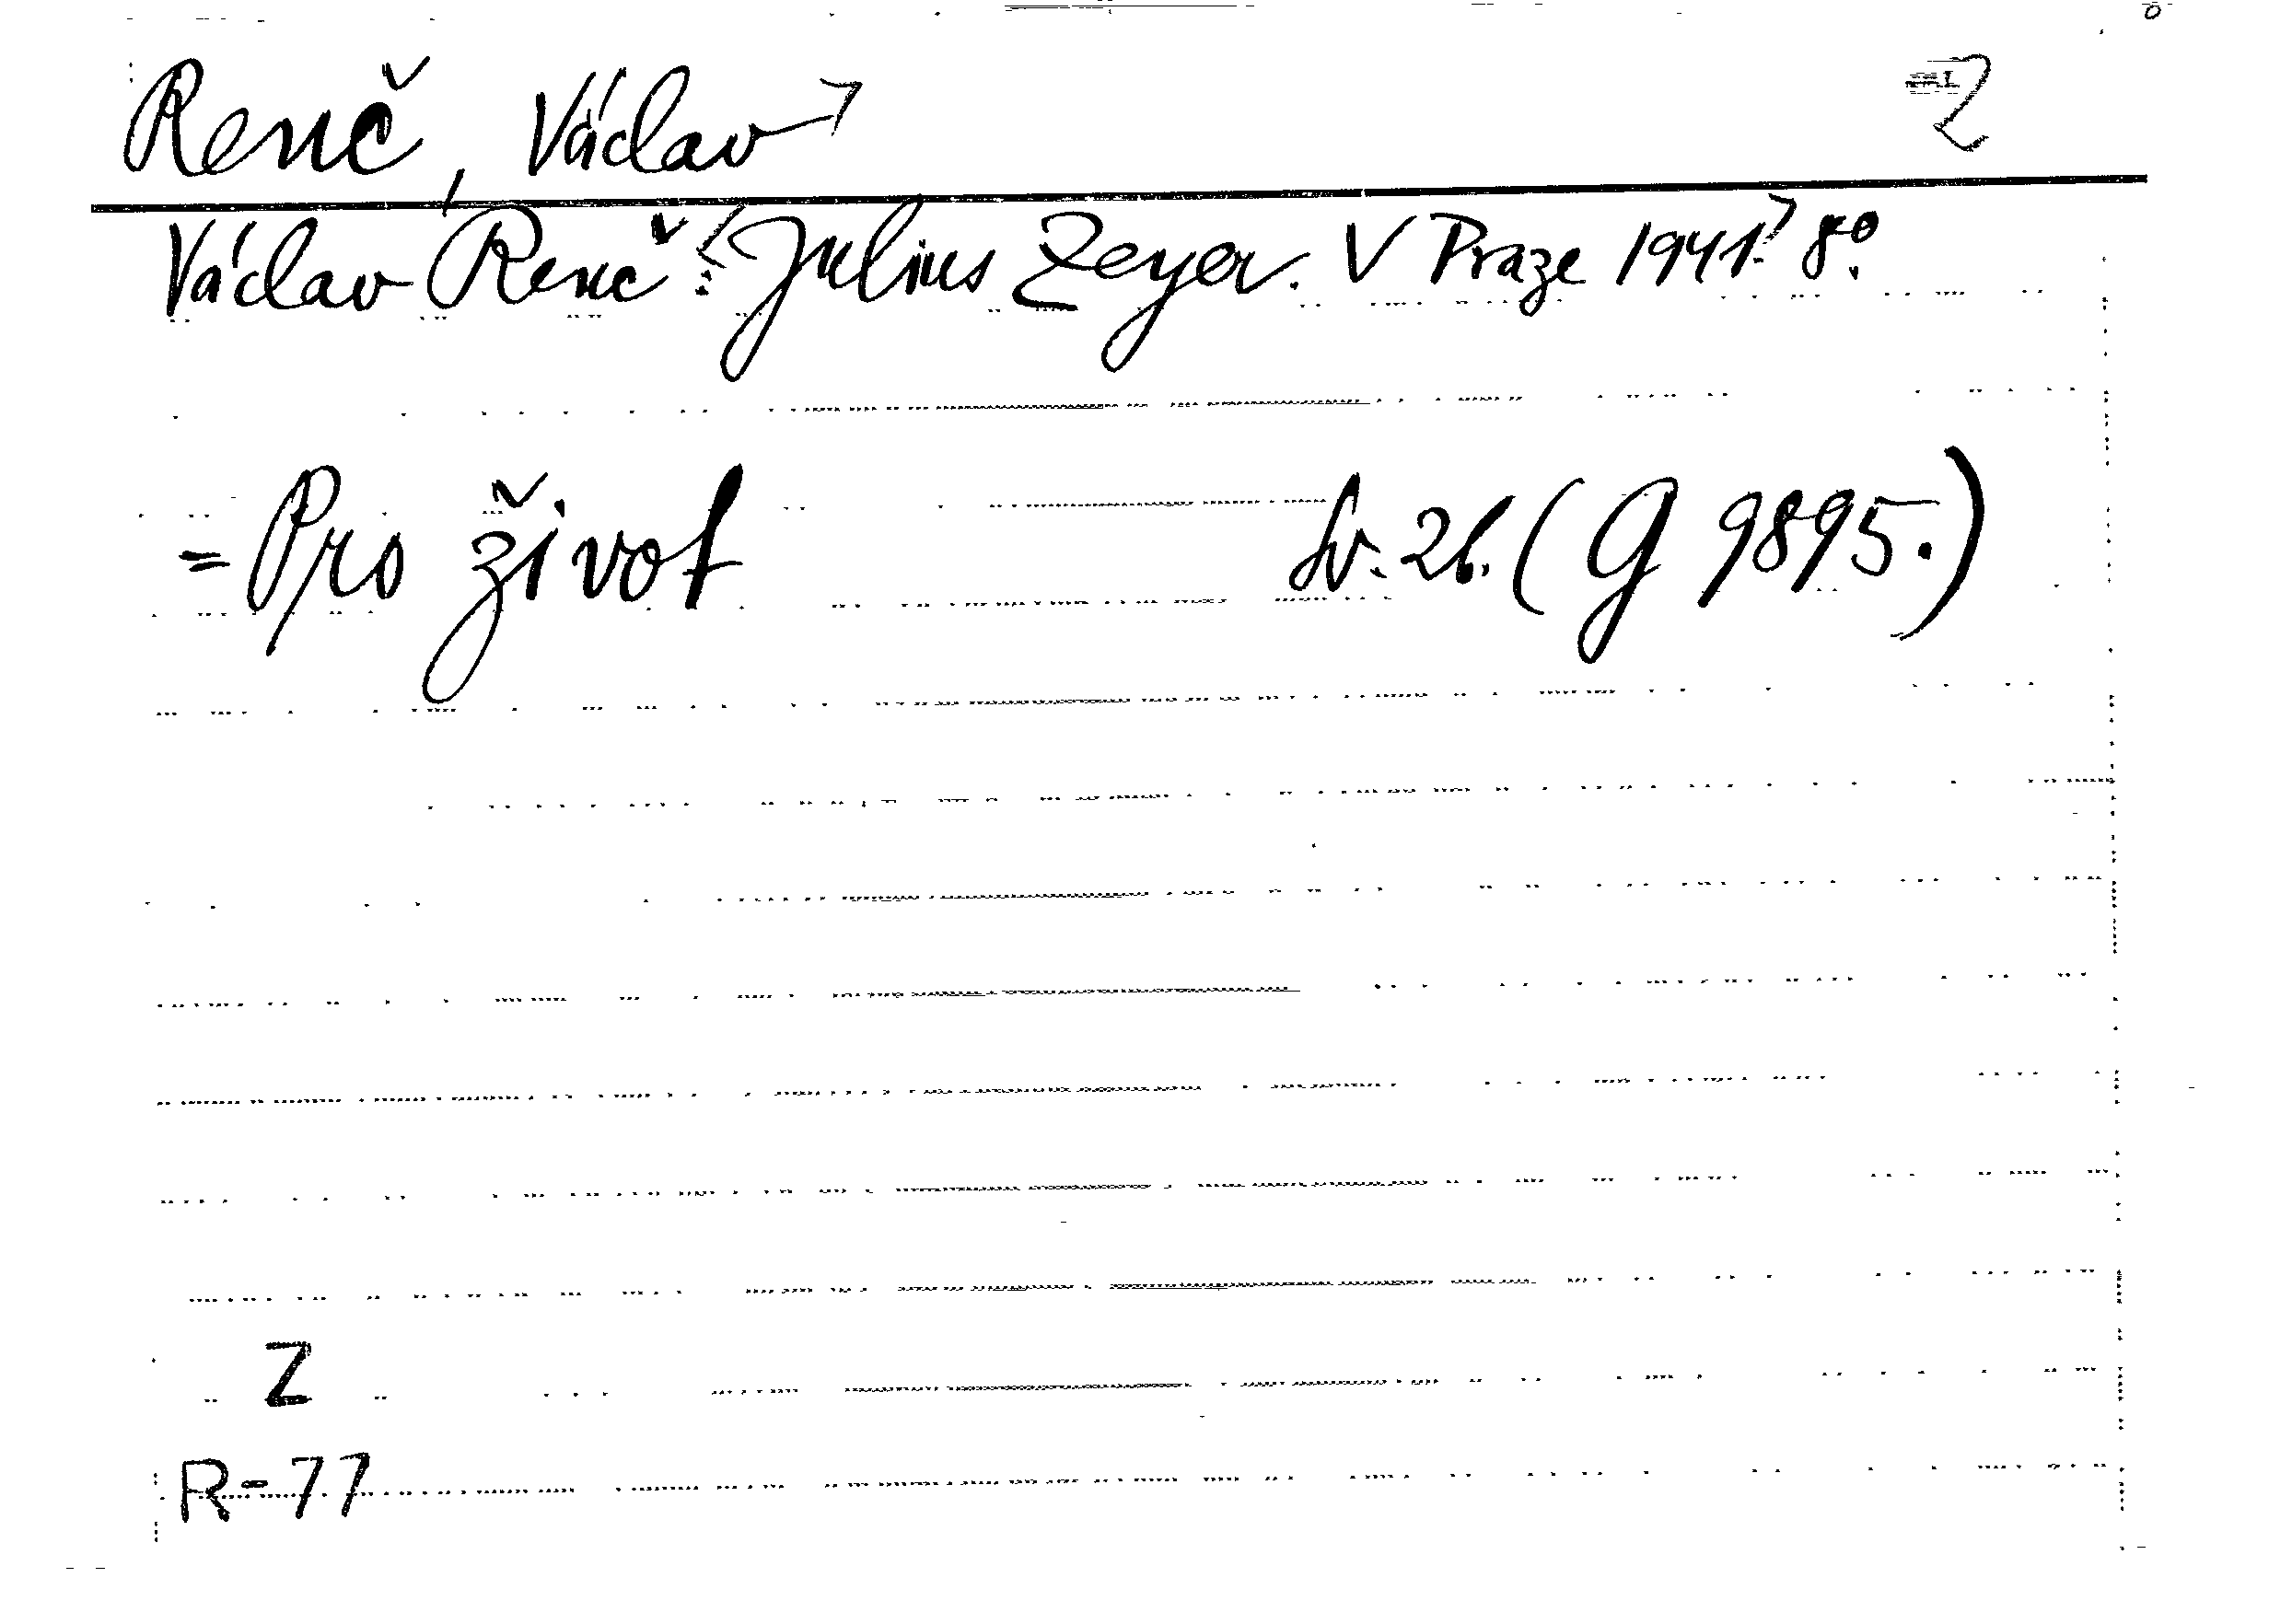 Renč, Václav Z
Václav Renč: Julius Zeyer. V Praze 1941. 8°.
= Pro život sv. 26. (G 9895.)
Z
R-77